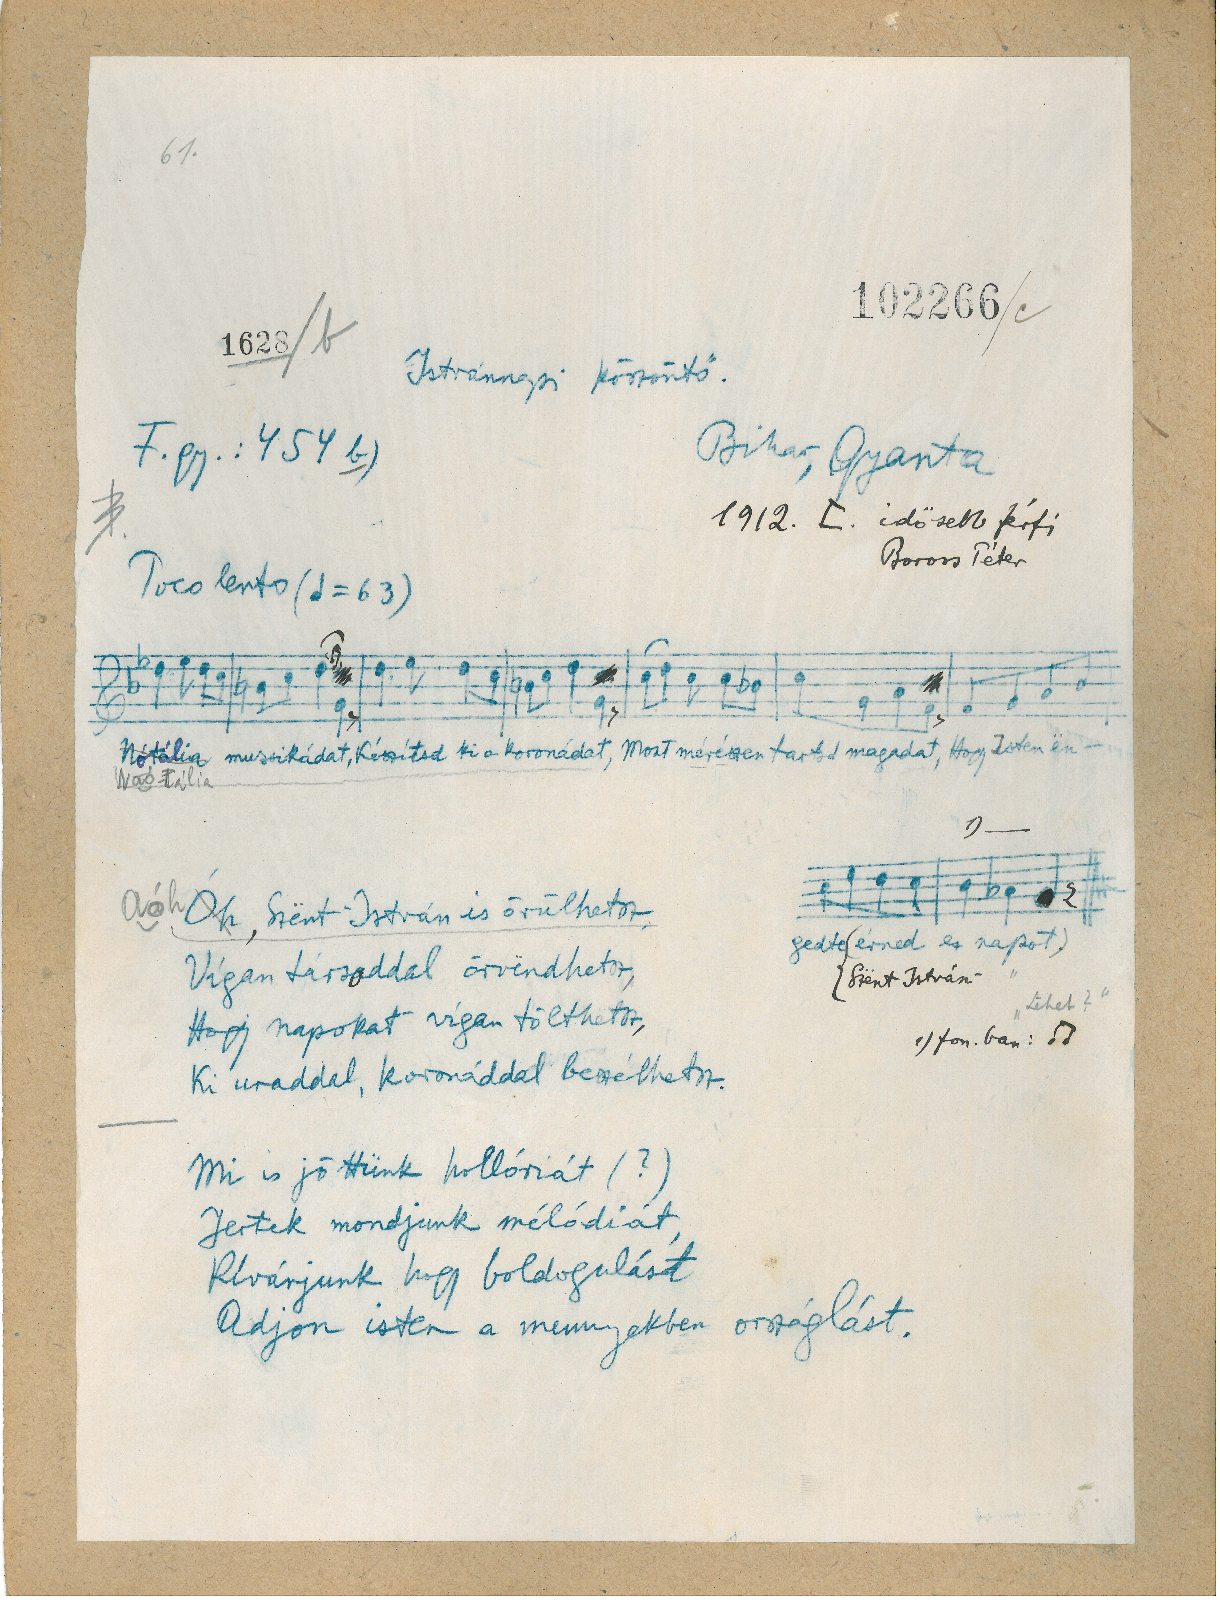 61.
102266/c
1628/b
Istvánnapi köszöntő.
F. gy.: 454 b)
Bihar, Gyanta
1912. I. idősebb férfi
Boross Péter
B.
Poco lento (♩=63)
Nótália mussikádat, Készítsd ki a koronádat, Most mérészen tartsd magadat, Hogy Isten ën-
Nao-tália
1)
gedte (érned ez napot)
(Szënt István- "
"Lehet?"
1) fon. ban: ♫
aóh Óh, Szënt-István is örülhetsz,
Vígan társoddal örvëndhetsz,
Hogy napokat vígan tölthetsz,
Ki uraddal, koronáddal beszélhetsz.
Mi is jöttünk hollóriát (?)
Jertek mondjunk mélódiát,
Kívánjunk hogy boldogulást
Adjon isten a mennyekben országlást.